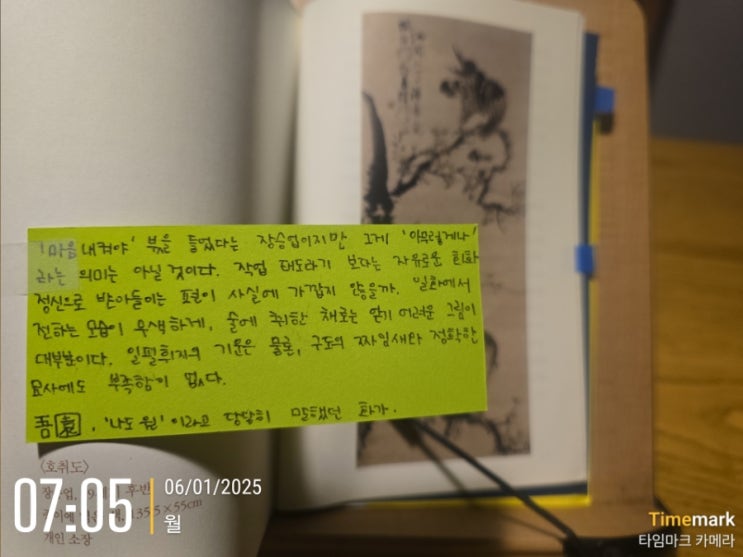 '마음 내켜야' 붓을 들었다는 장승업이지만 그게 '아무렇게나'
라는 의미는 아닐 것이다. 작업 태도라기 보다는 자유로운 회화
정신으로 받아들이는 편이 사실에 가깝지 않을까. 일화에서
전하는 모습이 무색하게, 술에 취한 채로는 얻기 어려운 그림이
대부분이다. 일필휘지의 기운은 물론, 구도의 짜임새와 정확한
묘사에도 부족함이 없다.
吾園, '나도 원'이라고 당당히 말했던 화가.
〈호취도〉
후반
135.5×55cm
개인 소장
07:05
06/01/2025
월
Timemark
타임마크 카메라